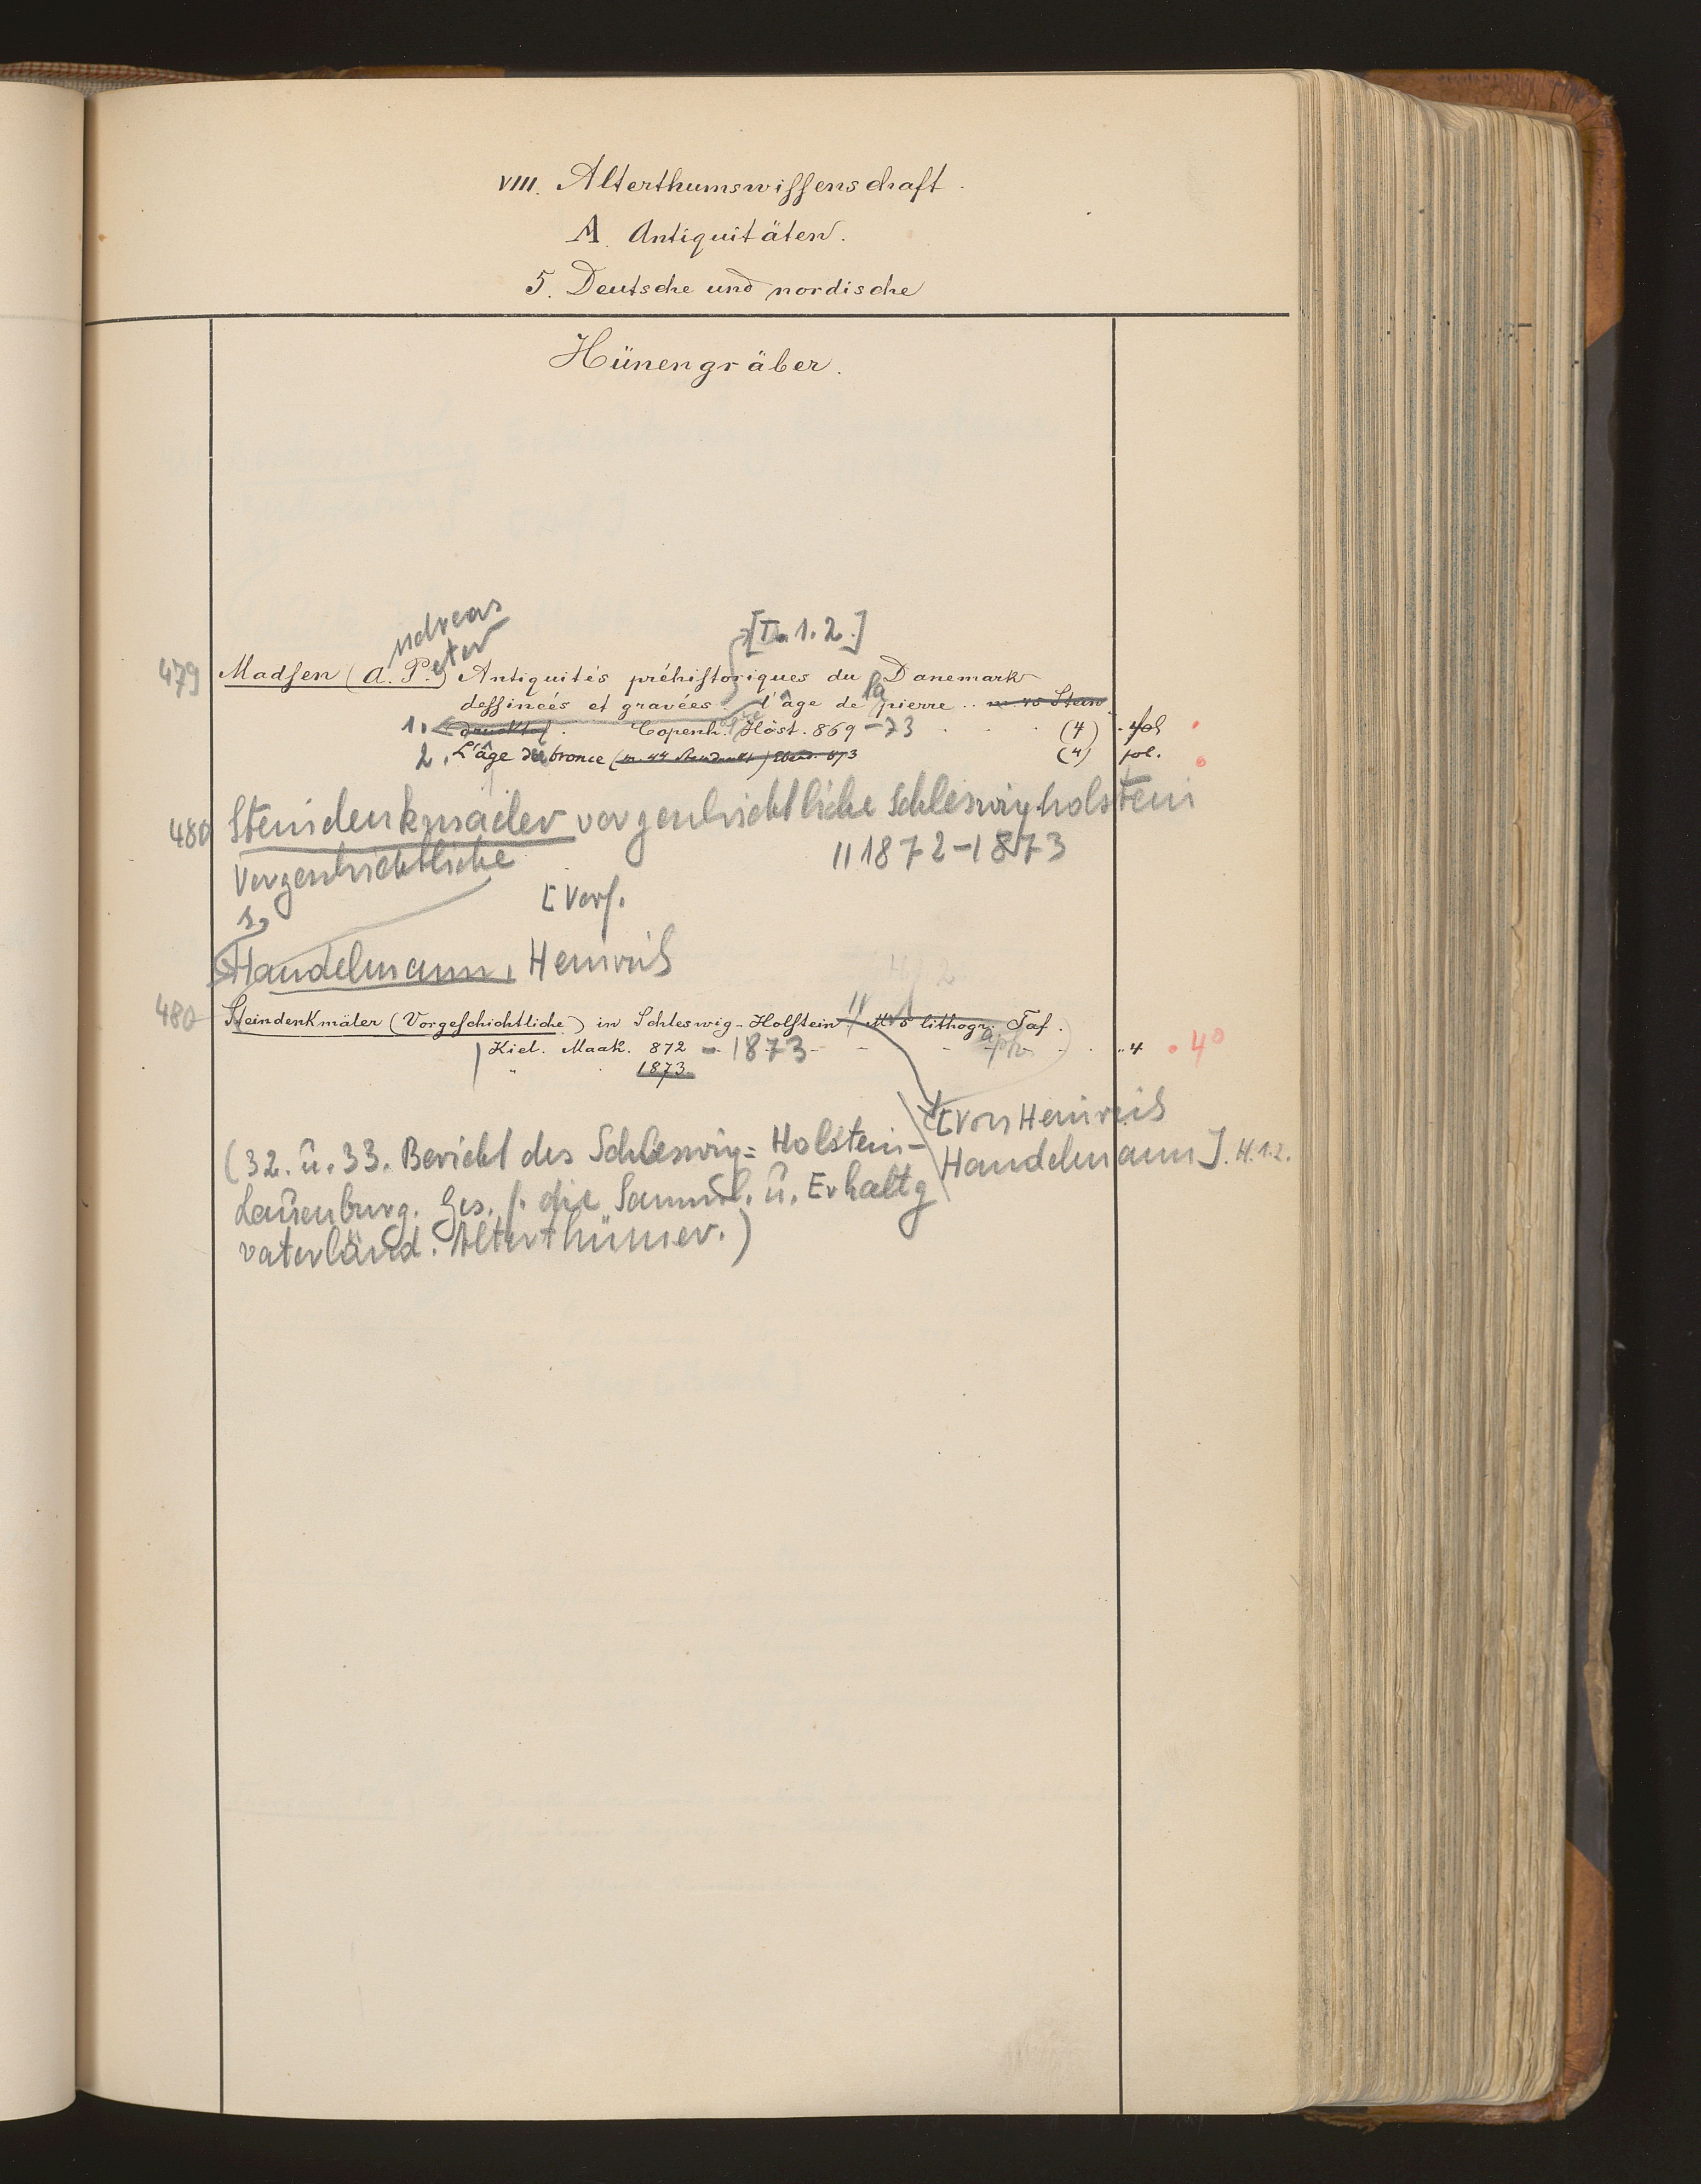 VIII. Alterthumswissenschaft.
A. Antiquitäten.
5. Deutsche und nordische
Hünengräber.
ndreas
eter
[T. 1. 2.]
479 Madsen (A. P.) Antiquités préhistoriques du Danemark
dessineés et gravées. l'âge de la pierre.. m 45 Stein
1. drucktaf. Copenh. Höst. 869 - 73 (4) fol.
2. L'âge du bronce (m. 44 ) Ebend. 873 (4) fol.
480 Steindenkmaeler vorgeschichtliche Schleswigholstein
Vorgeschichtliche || 1872-1873
s. [Verf.
Handelmann, Heinrich
480 Steindenkmäler (Vorgeschichtliche) in Schleswig-Holstein. || M 5 lithogr. Taf.
aph
Kiel. Maak. 872 - 1873 " 4 . 4°
" 1873.
[Von Heinrich
Handelmann]. H. 1.2.
(32. u. 33. Bericht des Schleswig=Holstein-
Lauenburg. Ges. f. die Samml. u. Erhaltg
vaterländ. Alterthümer.)